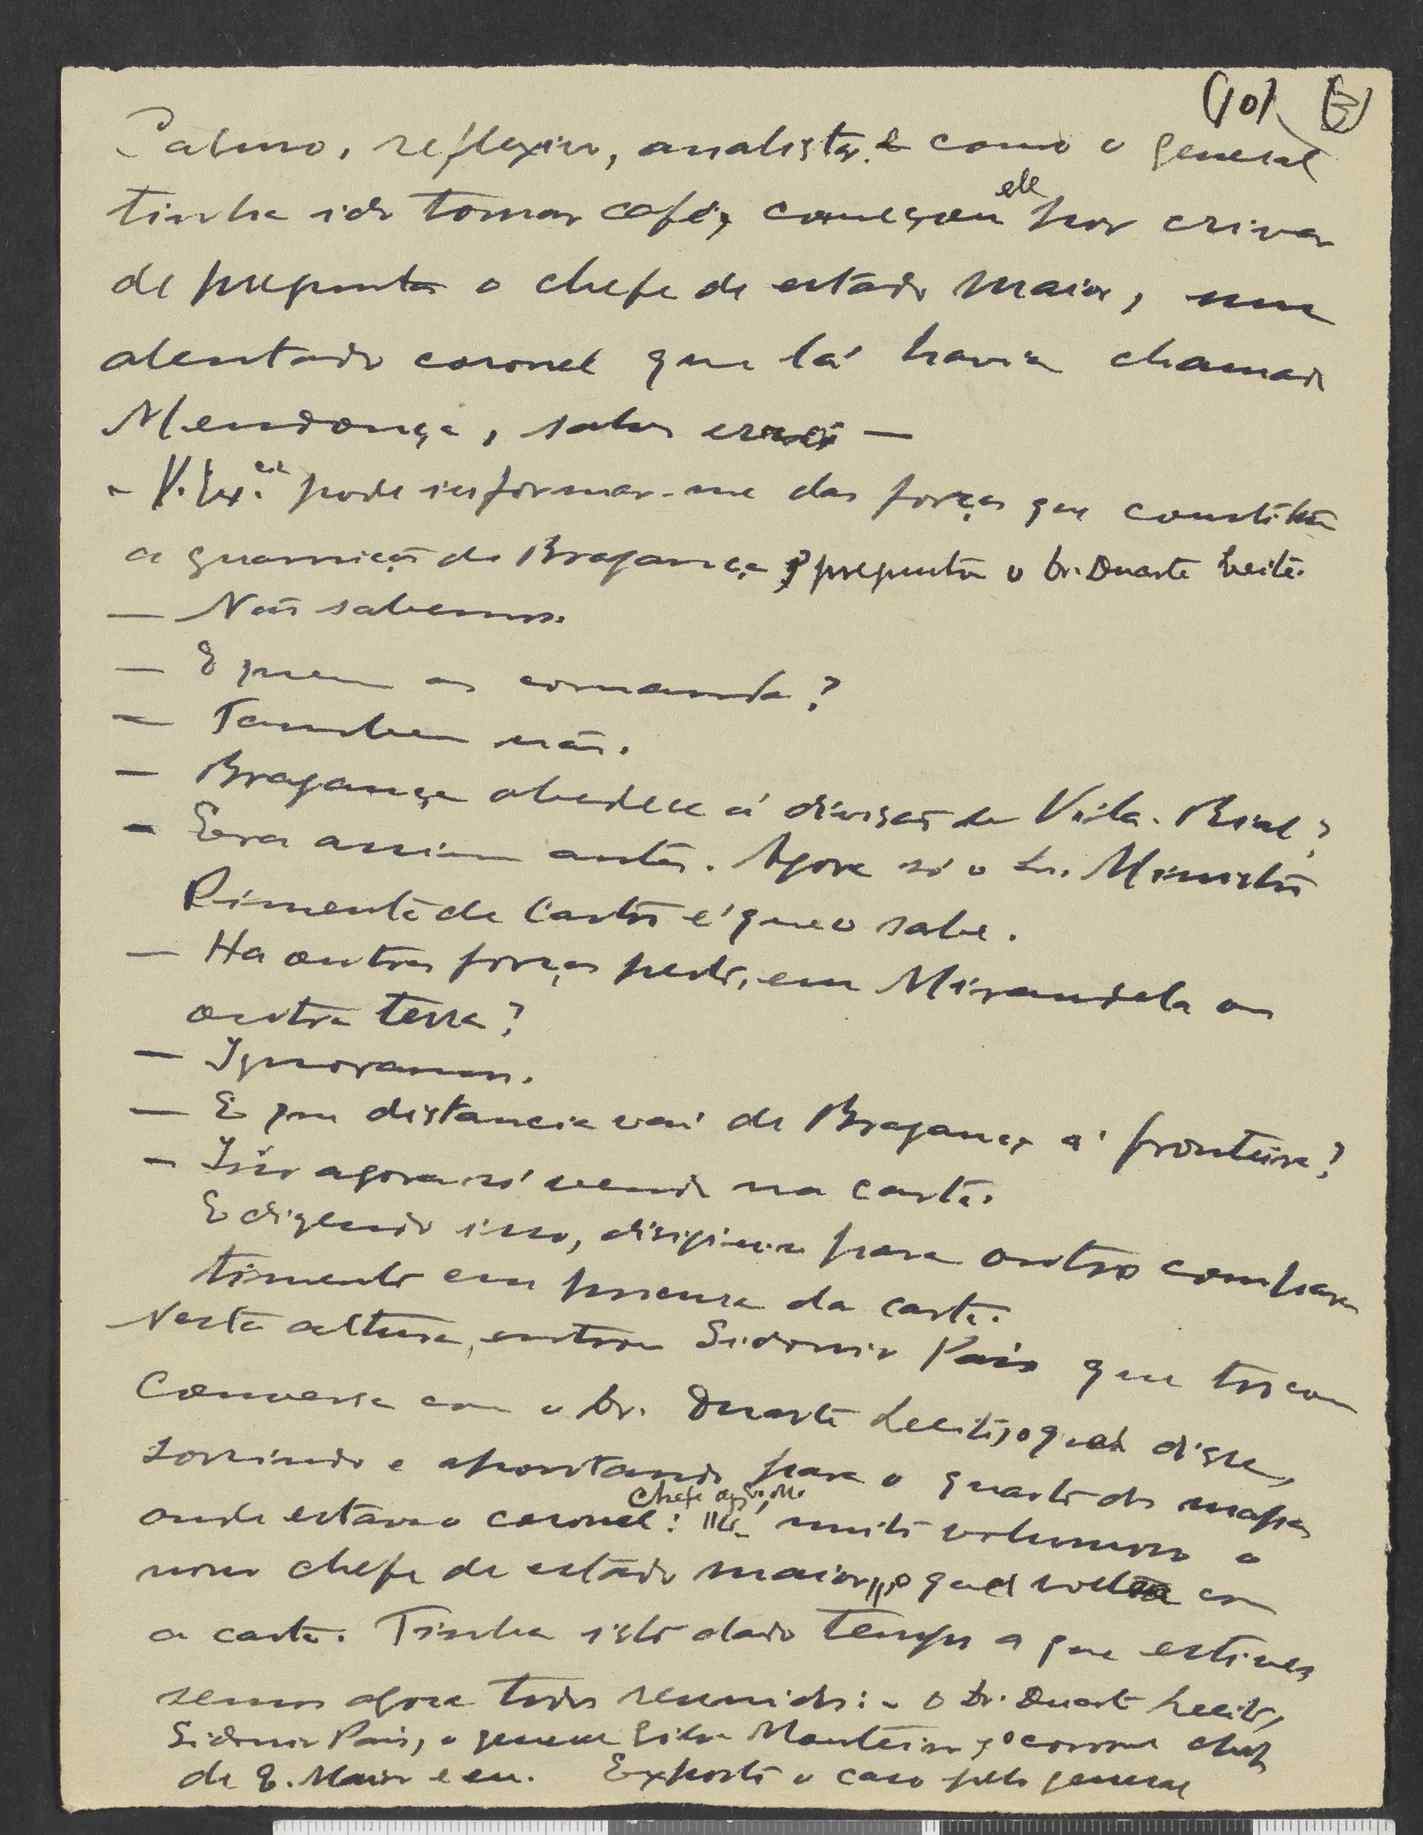 (10)
Calmo, reflexivo, analista e como o general
tinha ido tomar café, começou ele por crivar
de pregunta o chefe de estado maior, um
alentado coronel que lá havia chamado
Mendonça, salvo erro —
- V. Ex.cia pode informar-me das forças que constituem
a guarnição de Bragança? pregunta o Dr. Duarte Leite.
— Não sabemos.
— E quem as comanda?
— Tambem não.
— Bragança obedece á divisão de Vila-Real?
— Era assim antes. Agora só o Sr. Ministro
Pimenta de Castro é que o sabe.
— Ha outras forças perto, em Mirandela ou
outra terra?
— Ignoramos.
— E que distancia vai de Bragança á fronteira?
— Isso agora só vendo na carta.
E dizendo isso, dirigiu-se para outro compar
timento em procura da carta.
Nesta altura, entrou Sidonio Pais que trocou
conversa com o Dr. Duarte Leite, o qual disse,
sorrindo e apontando para o quarto dos mapas
onde estava o coronel: "É muito volumoso o
nosso chefe de estado maior", o qual volta com
a carta. Tinha isto dado tempo a que estives
semos agora todos reunidos: - o Dr. Duarte Leite,
Sidonio Pais, o general Silva Monteiro, o coronel chefe
de E. Maior e eu. Exposto o caso pelo general